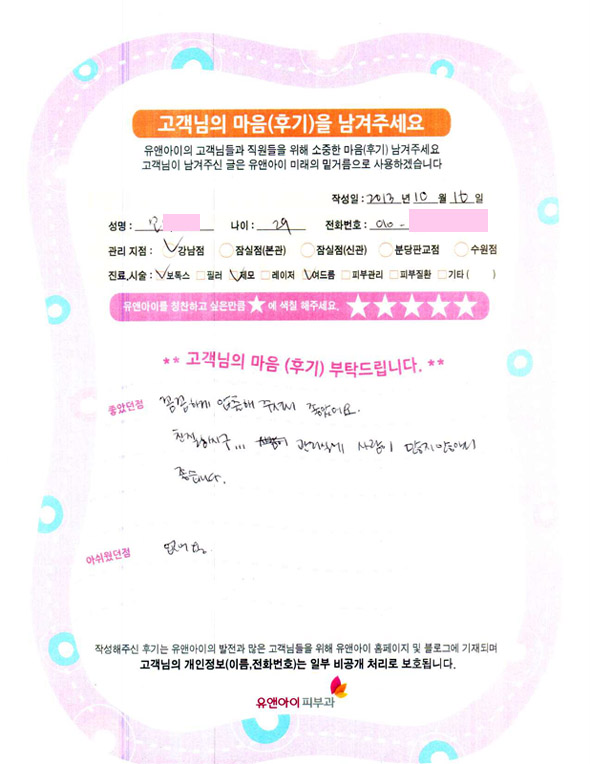 고객님의 마음(후기)을 남겨주세요
유앤아이의 고객님들과 직원들을 위해 소중한 마음(후기) 남겨주세요
고객님이 남겨주신 글은 유앤아이 미래의 밑거름으로 사용하겠습니다
작성일 : 2013 년 10 월 16 일
성명 : 나이 : 29 전화번호 : 010 -
관리 지점 : 강남점 잠실점(본관) 잠실점(신관) 분당판교점 수원점
진료,시술 : 보톡스 필러 제모 레이저 여드름 피부관리 피부질환 기타 ( )
유앤아이를 칭찬하고 싶은만큼 ★ 에 색칠 해주세요. ★★★★★
** 고객님의 마음 (후기) 부탁드립니다. **
좋았던점 꼼꼼하게 압출해 주셔서 좋았어요.
친절하시구... 관리실에 사람이 많지않아서
좋습니다.
아쉬웠던점 없어요.
작성해주신 후기는 유앤아이의 발전과 많은 고객님들을 위해 유앤아이 홈페이지 및 블로그에 기재되며
고객님의 개인정보(이름,전화번호)는 일부 비공개 처리로 보호됩니다.
유앤아이 피부과